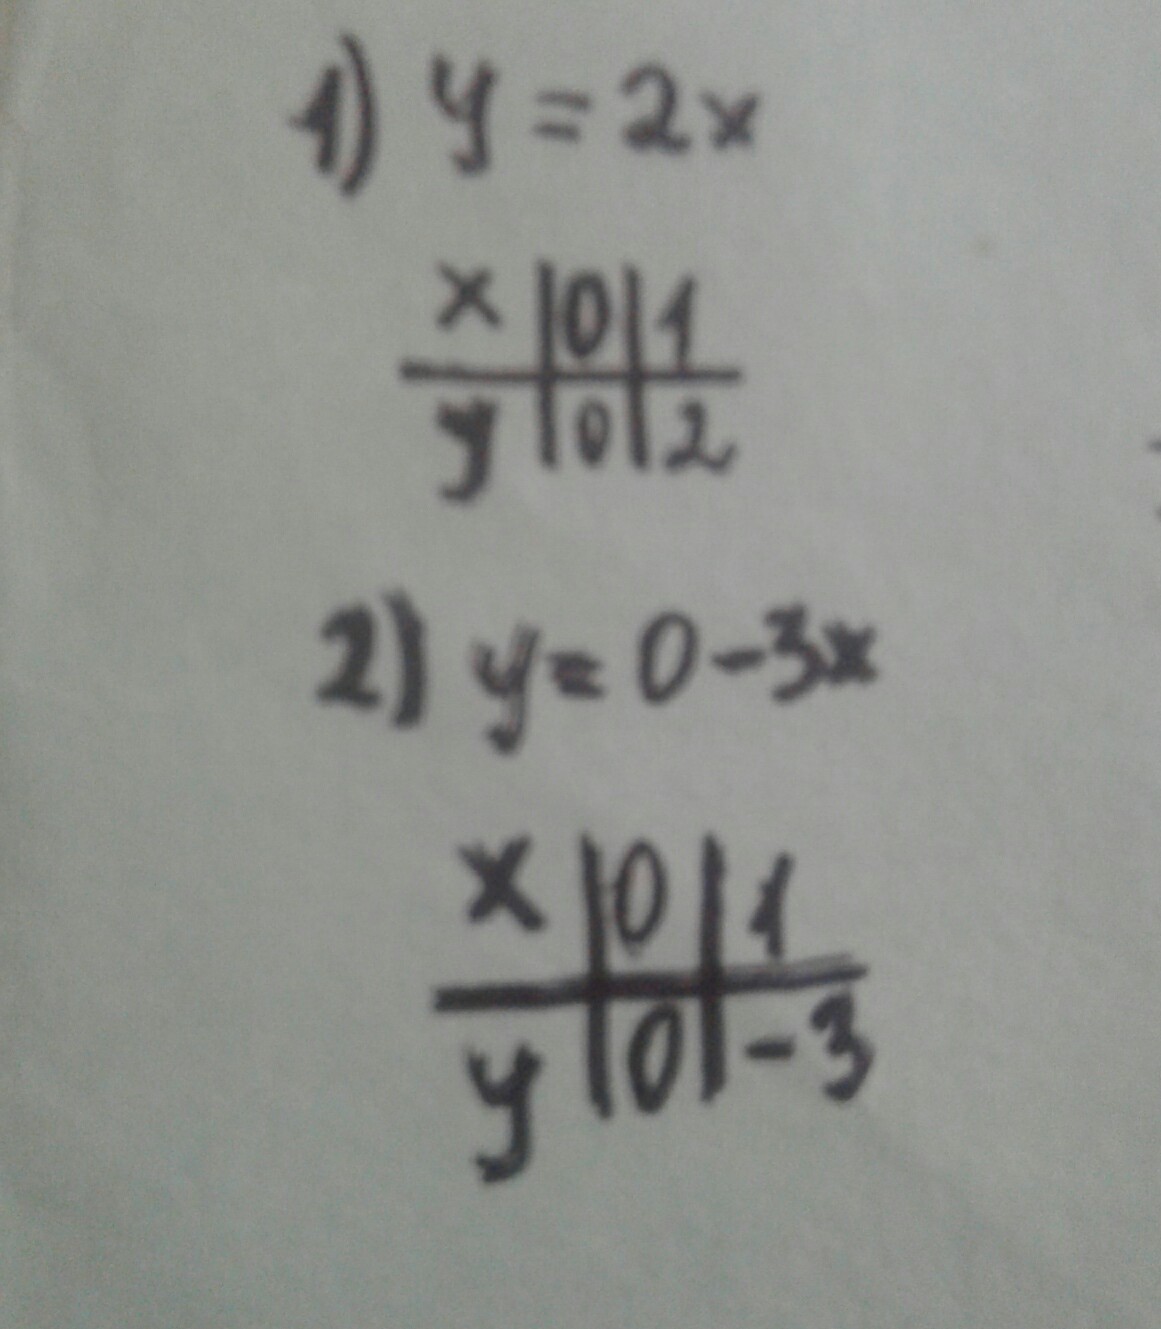 1) y = 2x
x | 0 | 1
y | 0 | 2
2) y = 0 - 3x
x | 0 | 1
y | 0 | -3